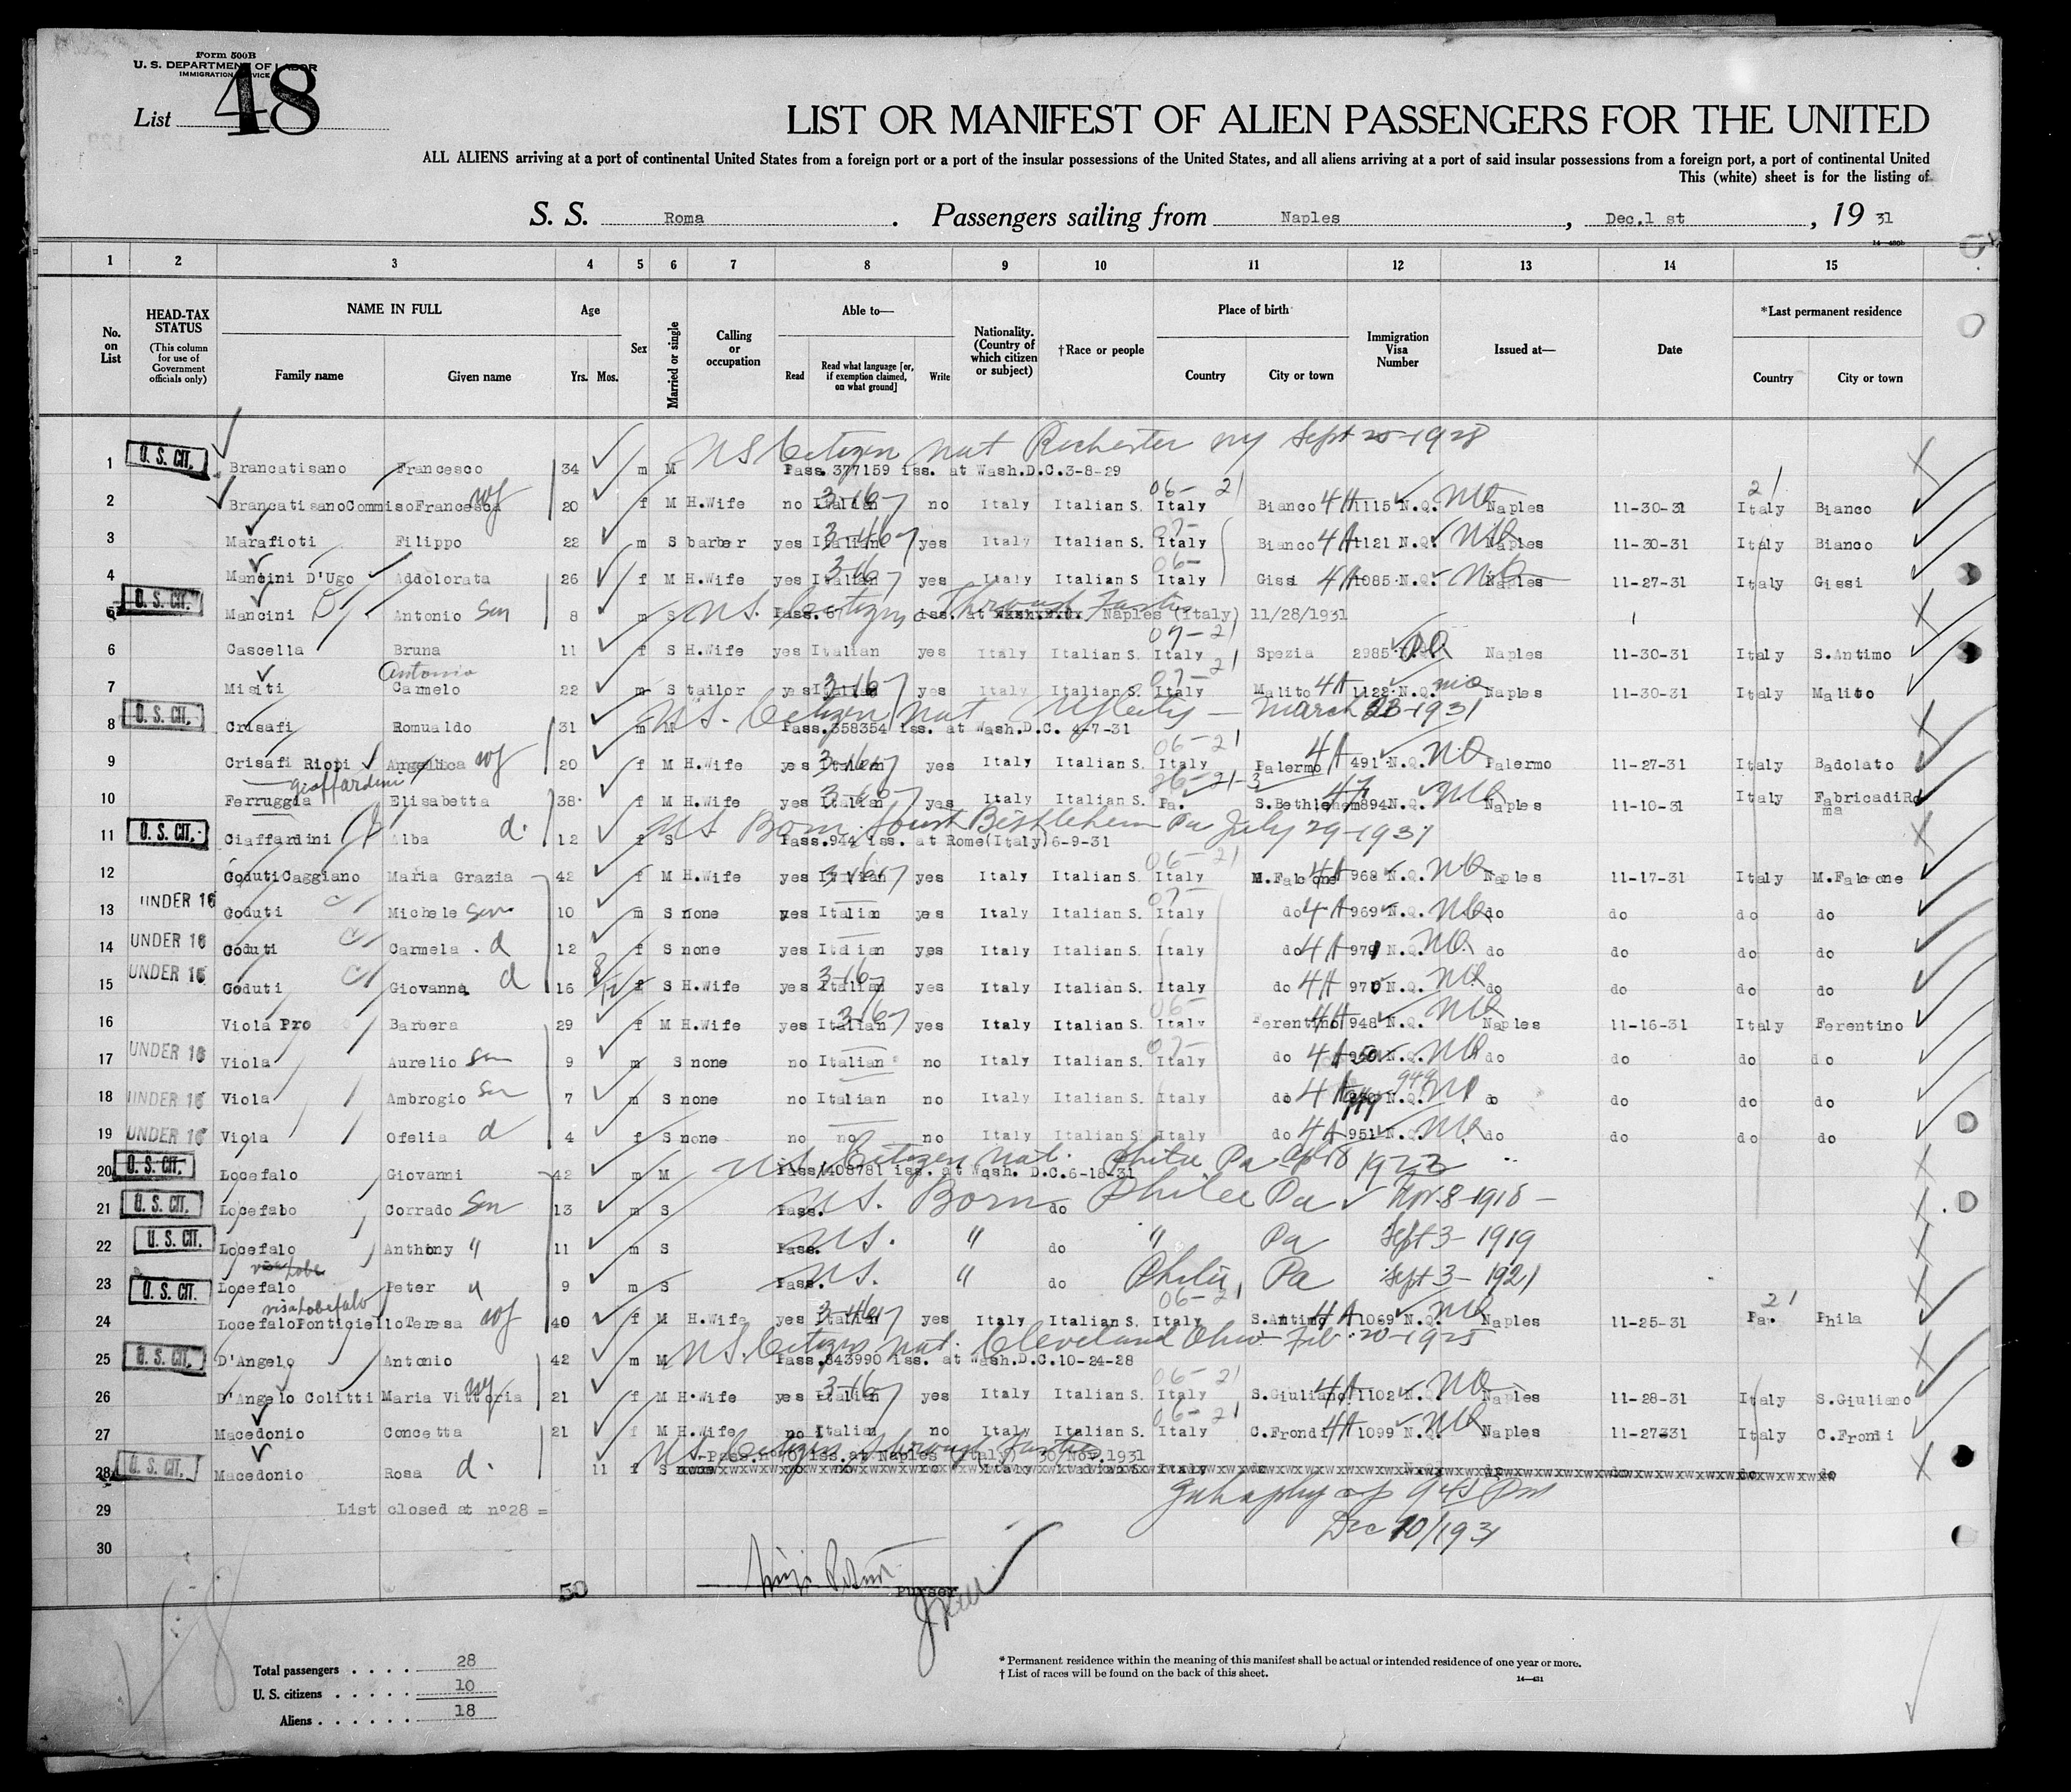 Form 500B
U. S. DEPARTMENT OF LABOR
IMMIGRATION SERVICE
List 48
LIST OR MANIFEST OF ALIEN PASSENGERS FOR THE UNITED
ALL ALIENS arriving at a port of continental United States from a foreign port or a port of the insular possessions of the United States, and all aliens arriving at a port of said insular possessions from a foreign port, a port of continental United
This (white) sheet is for the listing of
S. S. Roma. Passengers sailing from Naples, Dec.1 st, 19 31
1 2 3 4 5 6 7 8 9 10 11 12 13 14 15
No. on List HEAD-TAX STATUS (This column for use of Government officials only) NAME IN FULL Family name Given name Age Yrs. Mos. Sex Married or single Calling or occupation Able to— Read Read what language [or, if exemption claimed, on what ground] Write Nationality. (Country of which citizen or subject) †Race or people Place of birth Country City or town Immigration Visa Number Issued at— Date *Last permanent residence Country City or town
US Citizen nat Rochester ny Sept 20-1928
1 U. S. CIT. Brancatisano Francesco 34 m M Pass.377159 iss. at Wash.D.C.3-8-29
2 BrancatisanoCommisoFrancesca wf 20 f M H.Wife no Italian no Italy Italian S. Italy Bianco 4A 1115 N.Q. Naples 11-30-31 Italy Bianco
3 Marafioti Filippo 22 m S barber yes Italian yes Italy Italian S. Italy Bianco 4A 1121 N.Q. Naples 11-30-31 Italy Bianco
4 Mancini D'Ugo Addolorata 26 f M H.Wife yes Italian yes Italy Italian S Italy Gissi 4A 1085 N.Q. Naples 11-27-31 Italy Gissi
5 U. S. CIT. Mancini Antonio Son 8 m S US. Citizen Through Father Pass. iss. at Naples (Italy) 11/28/1931
6 Cascella Bruna 11 f S H.Wife yes Italian yes Italy Italian S. Italy Spezia 2985 Naples 11-30-31 Italy S.Antimo
Antonio
7 Misiti Carmelo 22 m S tailor yes Italian yes Italy Italian S. Italy Malito 4A 1122 N.Q. Naples 11-30-31 Italy Malito
8 U. S. CIT. Crisafi Romualdo 31 m M US. Citizen nat Pass.358354 iss. at Wash.D.C. 4-7-31
9 Crisafi Riopi Angelica wf 20 f M H.Wife yes Italian yes Italy Italian S. Italy Palermo 4A 491 N.Q. Palermo 11-27-31 Italy Badolato
Giaffardini
10 Ferruggia Elisabetta 38 f M H.Wife yes Italian yes Italy Italian S. Pa. S.Bethlehem 894 N.Q. Naples 11-10-31 Italy FabricadiRoma
US Born South Bethlehem Pa July 29-1931
11 U. S. CIT. Ciaffardini Alba d. 12 f S Pass.944 iss. at Rome(Italy)6-9-31
12 CodutiCaggiano Maria Grazia 42 f M H.Wife yes Italian yes Italy Italian S. Italy M.Falcone 4A 968 N.Q. Naples 11-17-31 Italy M.Falcone
13 UNDER 16 Coduti Michele Son 10 m S none yes Italian yes Italy Italian S. Italy do 4A 969 N.Q. do do do do
14 UNDER 16 Coduti Carmela d 12 f S none yes Italian yes Italy Italian S. Italy do 4A 971 N.Q. do do do do
15 UNDER 16 Coduti Giovanna d 16 f S H.Wife yes Italian yes Italy Italian S. Italy do 4A 970 N.Q. do do do do
16 Viola Pro Barbera 29 f M H.Wife yes Italian yes Italy Italian S. Italy Ferentino 4A 948 N.Q. Naples 11-16-31 Italy Ferentino
17 UNDER 16 Viola Aurelio Son 9 m S none no Italian no Italy Italian S. Italy do 4A N.Q. do do do do
18 UNDER 16 Viola Ambrogio Son 7 m S none no Italian no Italy Italian S. Italy do 4A 949 N.Q. do do do do
19 UNDER 16 Viola Ofelia d 4 f S none no no no Italy Italian S Italy do 4A 951 N.Q. do do do do
US Citizen nat. Phila Pa 1922
20 U. S. CIT. Locefalo Giovanni 42 m M Pass.408781 iss. at Wash. D.C.6-18-31
21 U. S. CIT. Locefalo Corrado Son 13 m S Pass. US. Born do Phila Pa
22 U. S. CIT. Locefalo Anthony " 11 m S Pass. US. " do " Pa Sept 3-1919
23 U. S. CIT. Locefalo Peter " 9 m S Pass. US. " do Phila, Pa Sept 3-1921
visa Lobefalo
24 LocefaloPonticielloTeresa wf 40 f M H.Wife yes Italian yes Italy Italian S. Italy S.Antimo 4A 1069 N.Q. Naples 11-25-31 Pa. Phila
US. Citizen nat. Cleveland Ohio Feb. 20-1925
25 U. S. CIT. D'Angelo Antonio 42 m M Pass.643990 iss. at Wash.D.C.10-24-28
26 D'Angelo Colitti Maria Vittoria wf 21 f M H.Wife yes Italian yes Italy Italian S. Italy S.Giuliano 4A 1102 N.Q. Naples 11-28-31 Italy S.Giuliano
27 Macedonio Concetta 21 f M H.Wife no Italian no Italy Italian S. Italy C.Frondi 4A 1099 N.Q. Naples 11-27-31 Italy C.Frondi
US. Citizen through Father
Pass.n°70 iss.at Naples (Italy) 30 Nov.1931
28 U. S. CIT. Macedonio Rosa d. 11 f S
29 List closed at n°28 =
Dec 10/1931
30
50
Purser
Total passengers . . . . 28
U. S. citizens . . . . . 10
Aliens . . . . . . 18
* Permanent residence within the meaning of this manifest shall be actual or intended residence of one year or more.
† List of races will be found on the back of this sheet.
14—431